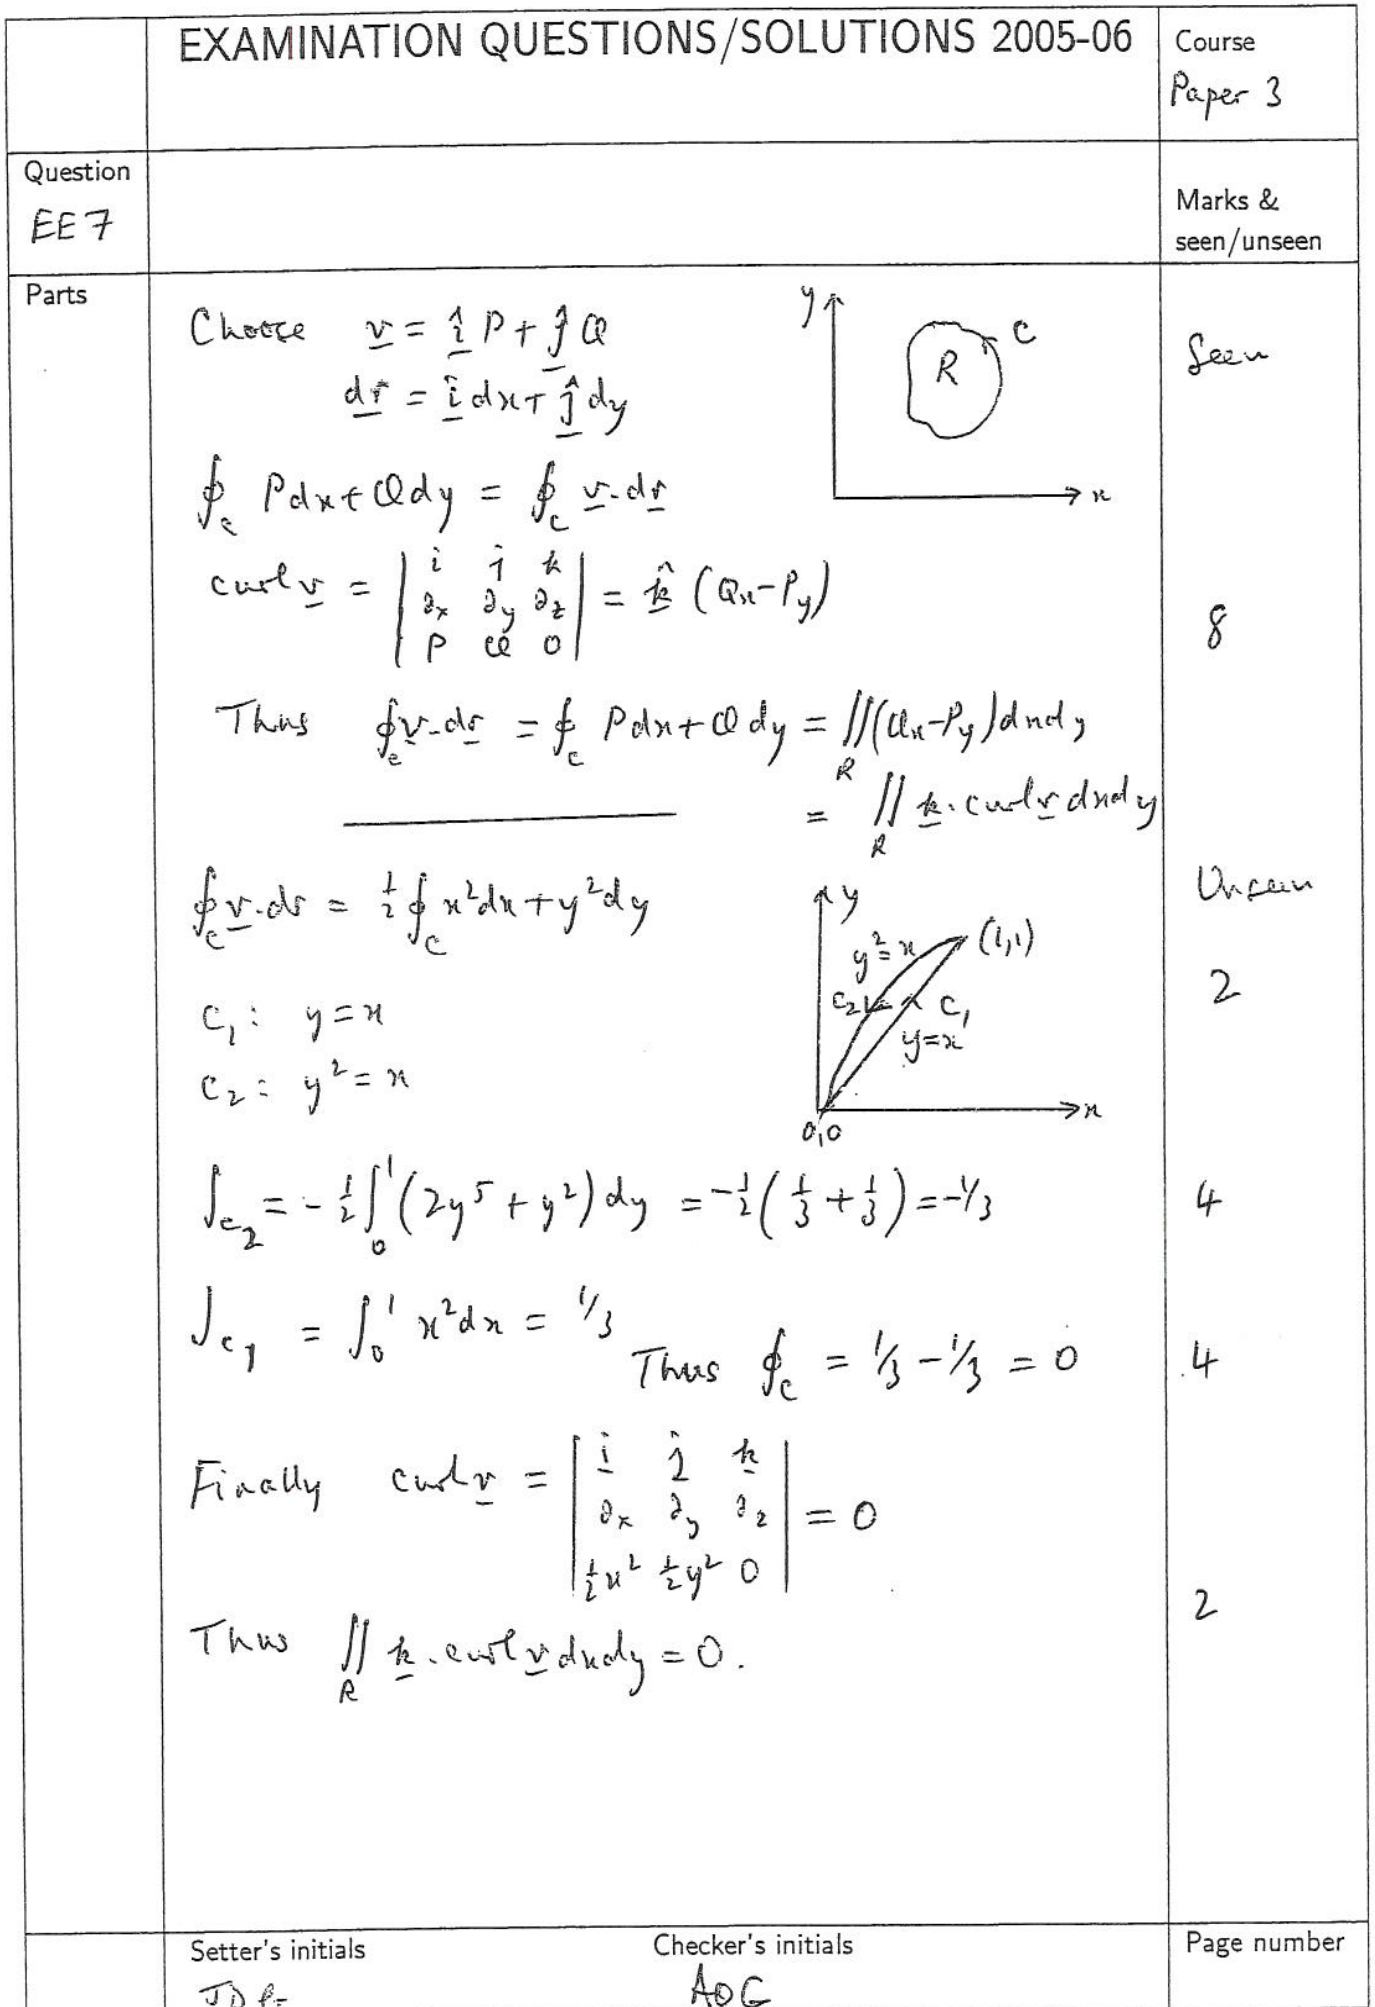 EXAMINATION QUESTIONS/SOLUTIONS 2005-06
Course
Paper 3
Question
EE7
Marks &
seen/unseen
Parts
Choose v = î P + ĵ Q
dr = î dx + ĵ dy
y
R
C
x
Seen
∮_c Pdx + Qdy = ∮_c v·dr
curl v = | i j k |
| ∂x ∂y ∂z | = k̂ (Qx - Py)
| P Q 0 |
8
Thus ∮_c v·dr = ∮_c Pdx + Qdy = ∬_R (Qx - Py) dxdy
= ∬_R k·curl v dxdy
∮_c v·dr = ½ ∮_C x²dx + y²dy
Unseen
y
y² = x
(1,1)
C2
C1
y=x
x
0,0
2
C1: y = x
C2: y² = x
∫_c2 = -½ ∫_0^1 (2y⁵ + y²) dy = -½ (⅓ + ⅓) = -1/3
4
∫_c1 = ∫_0^1 x²dx = 1/3
Thus ∮_c = 1/3 - 1/3 = 0
4
Finally curl v = | i j k |
| ∂x ∂y ∂z | = 0
| ½x² ½y² 0 |
2
Thus ∬_R k·curl v dxdy = 0.
Setter's initials
Checker's initials
AOG
Page number